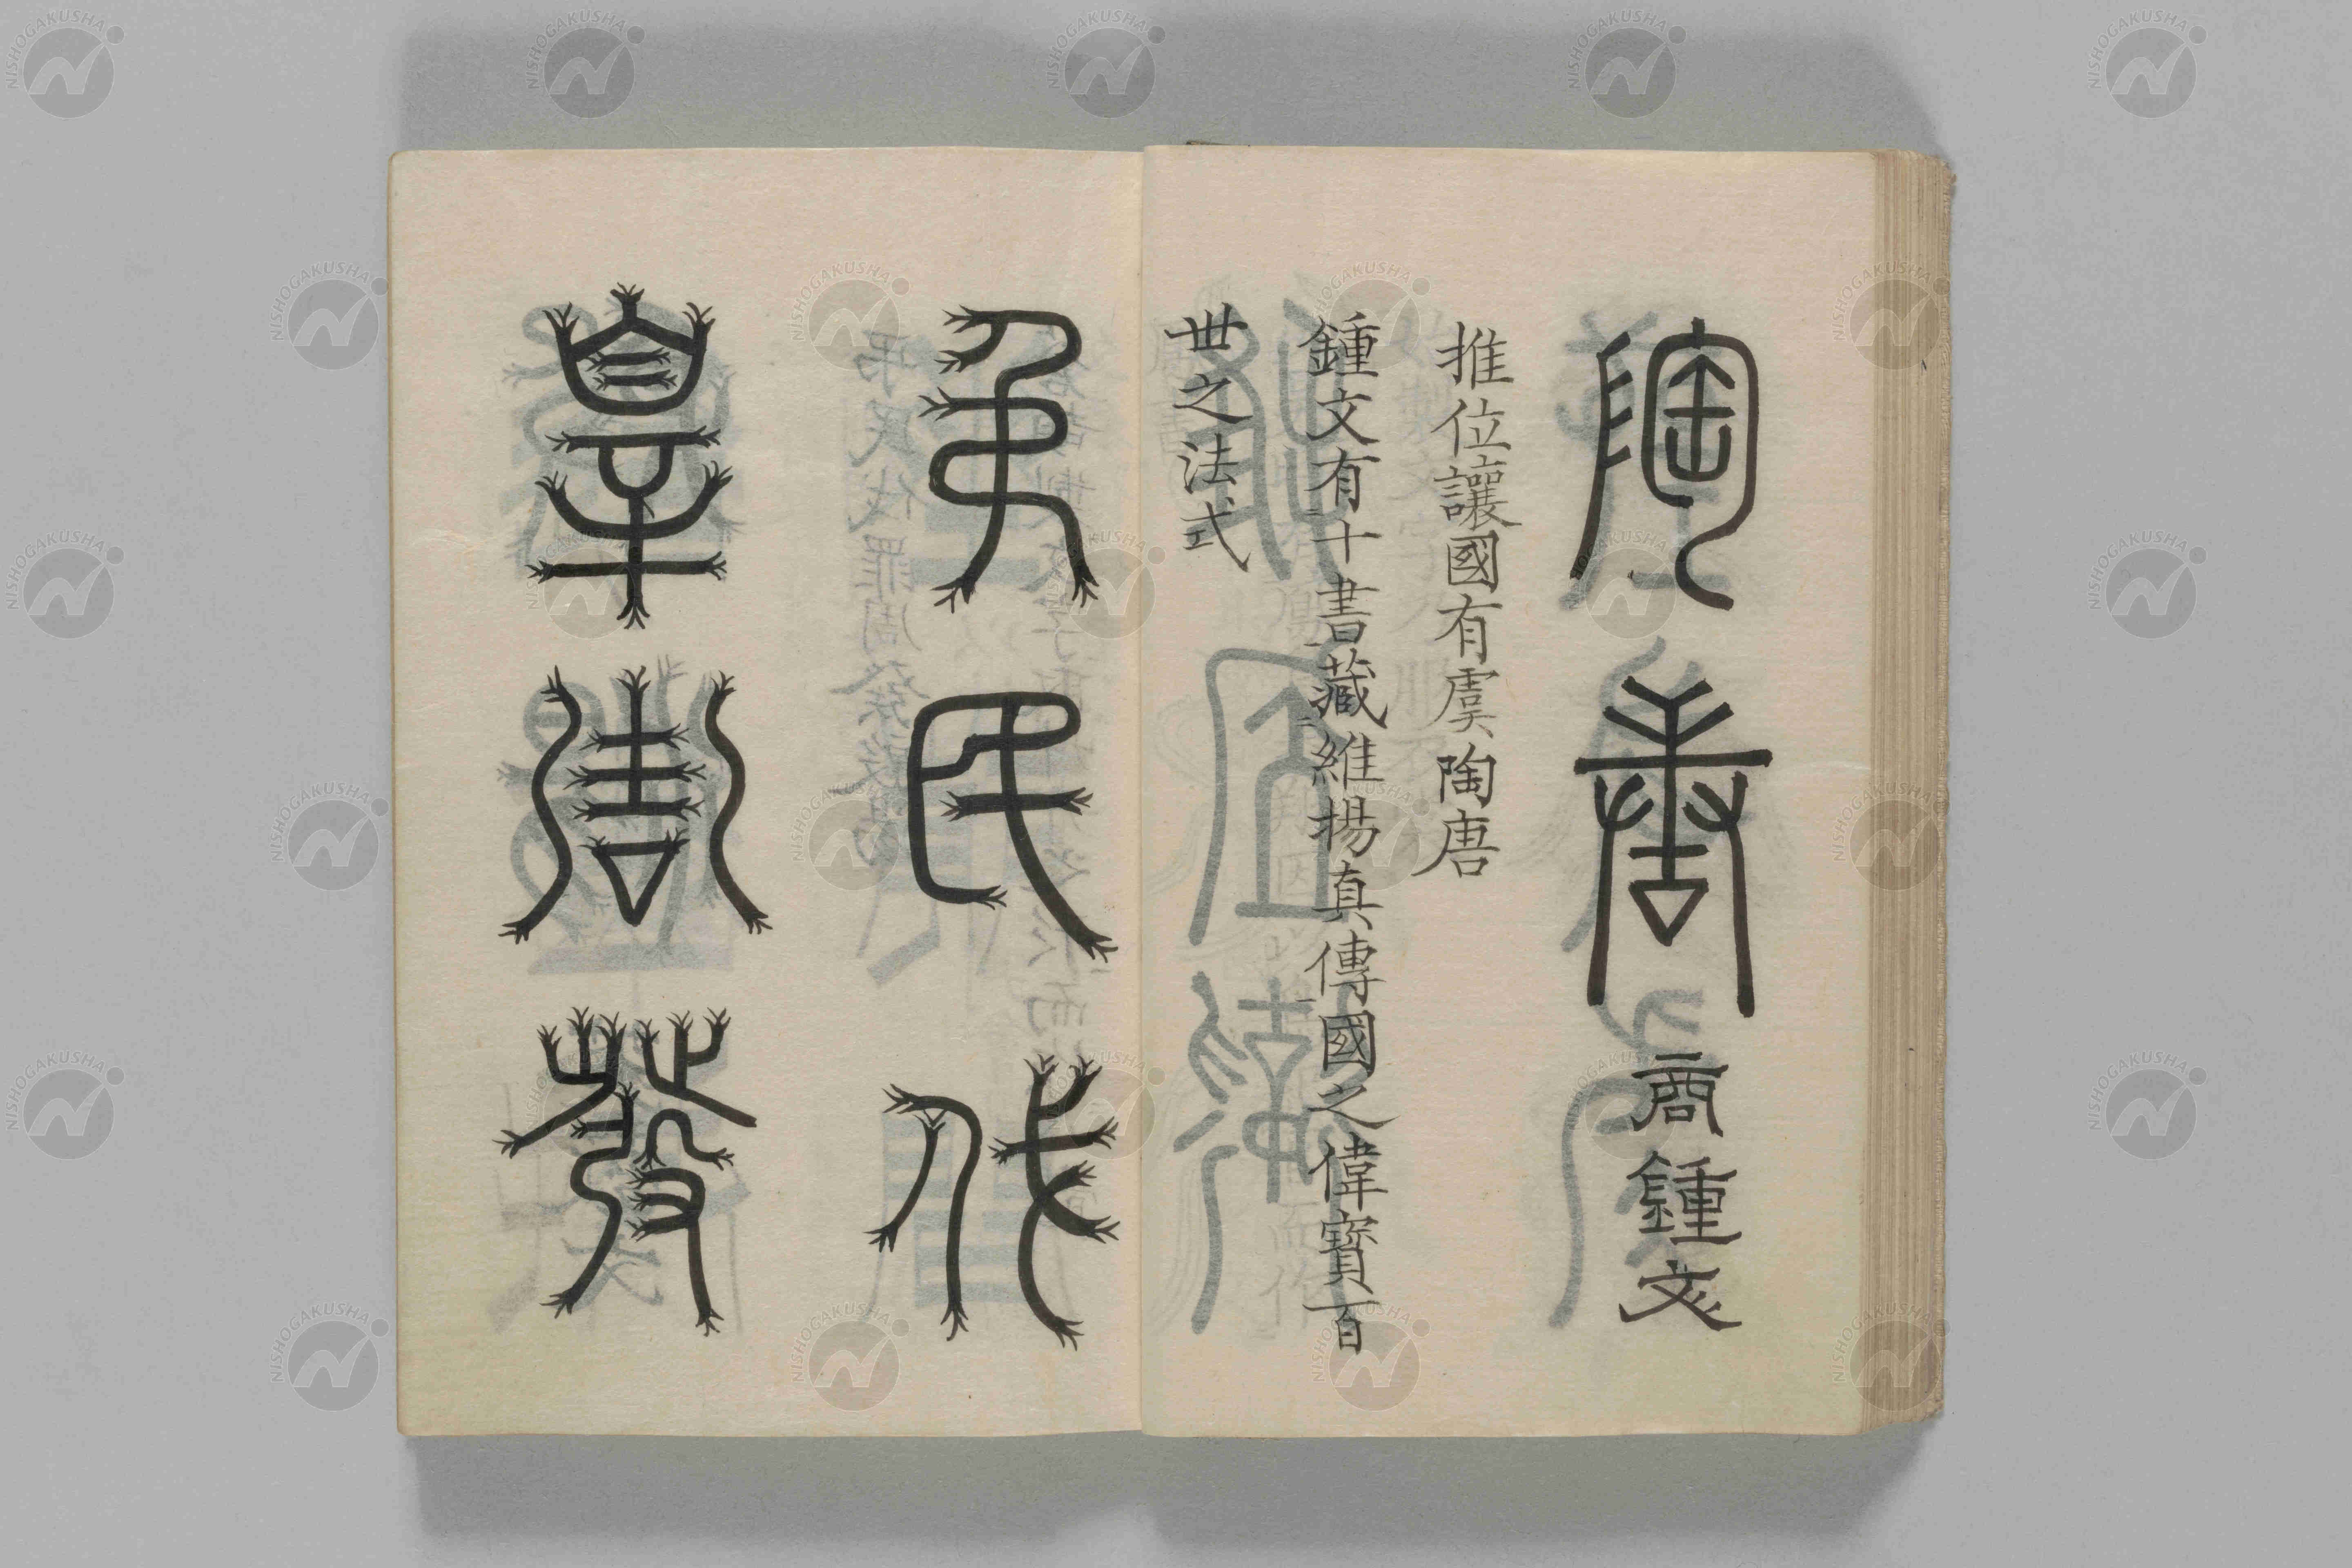 陶唐 商鍾文
推位讓國有虞陶唐
鍾文有十書藏維揚真傳國之偉寶百
世之法式
弔民伐
辠周發
NISHOGAKUSHA